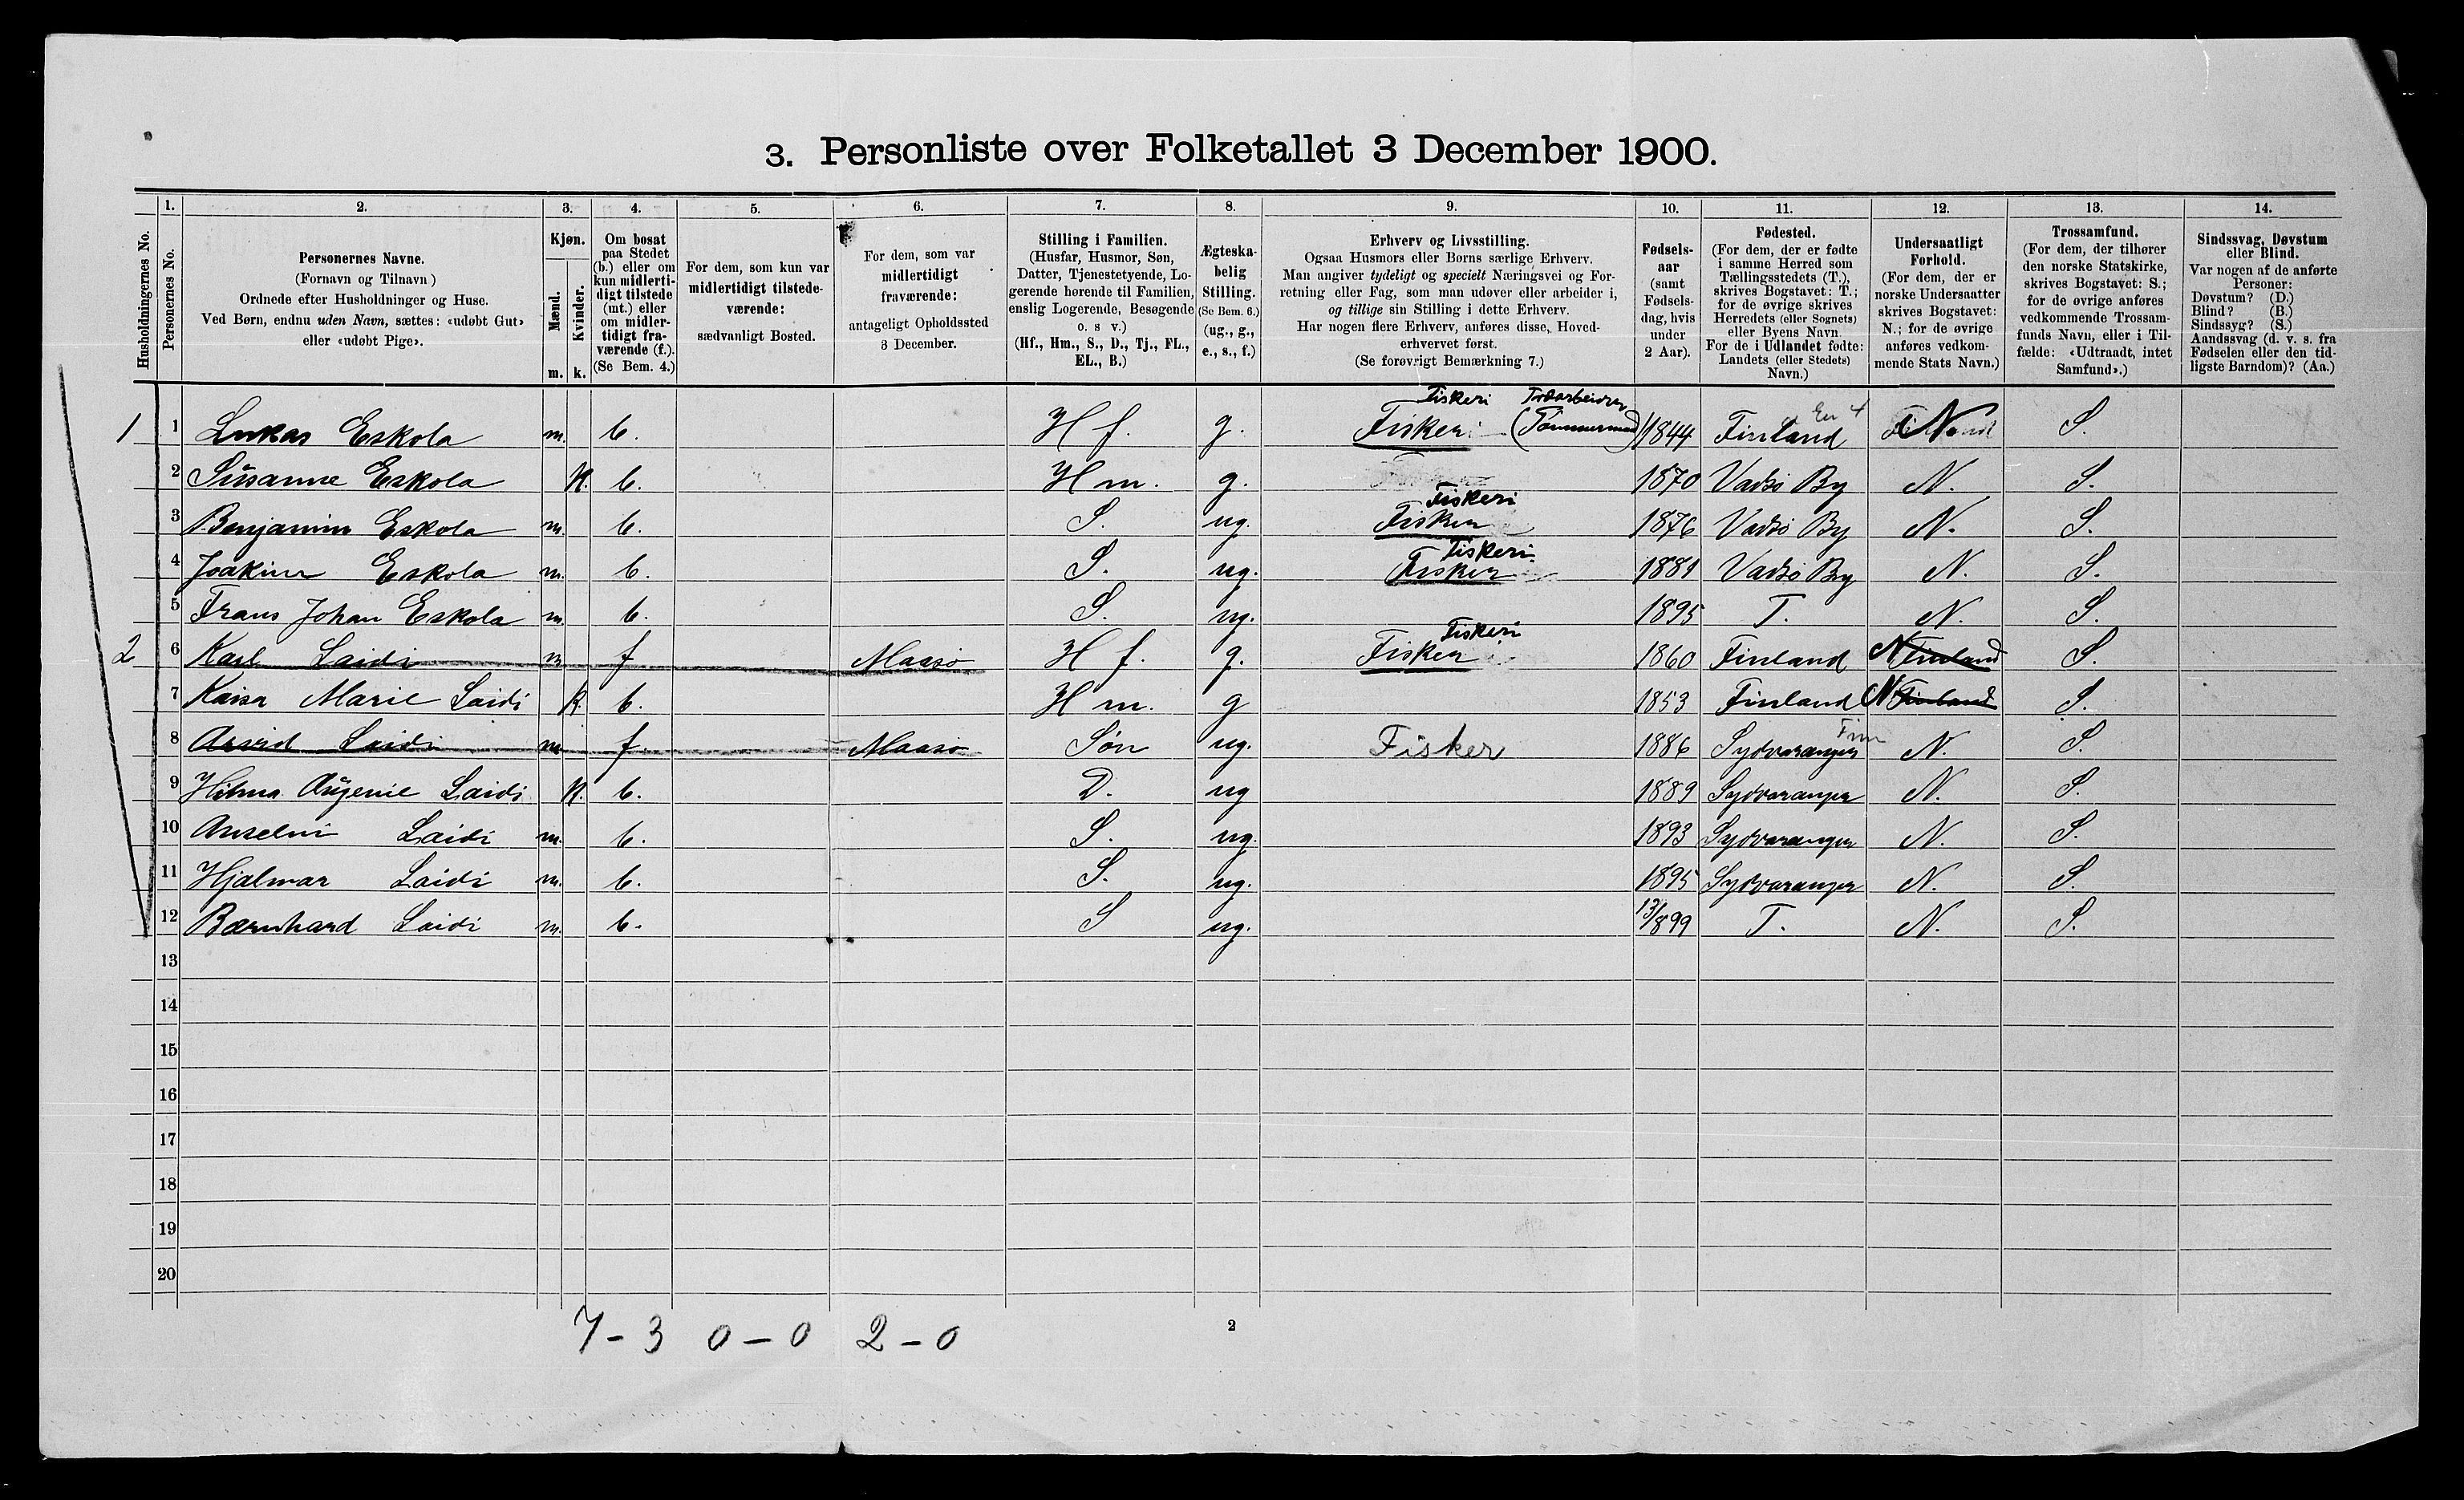 3. Personliste over Folketallet 3 December 1900.
Husholdningernes No.
1. Personernes No.
2. Personernes Navne.
(Fornavn og Tilnavn)
Ordnede efter Husholdninger og Huse.
Ved Børn, endnu uden Navn, sættes: «udøbt Gut»
eller «udøbt Pige».
3. Kjøn.
Mænd. m.
Kvinder. k.
4. Om bosat
paa Stedet
(b.) eller om
kun midlerti-
digt tilstede
(mt.) eller
om midler-
tidigt fra-
værende (f.).
(Se Bem. 4.)
5. For dem, som kun var
midlertidigt tilstede-
værende:
sædvanligt Bosted.
6. For dem, som var
midlertidigt
fraværende:
antageligt Opholdssted
3 December.
7. Stilling i Familien.
(Husfar, Husmor, Søn,
Datter, Tjenestetyende, Lo-
gerende hørende til Familien,
enslig Logerende, Besøgende
o. s v.)
(Hf., Hm., S., D., Tj., FL.,
EL., B.)
8. Ægteska-
belig
Stilling.
(Se Bem. 6.)
(ug., g.,
e., s., f.)
9. Erhverv og Livsstilling.
Ogsaa Husmors eller Børns særlige Erhverv.
Man angiver tydeligt og specielt Næringsvei og For-
retning eller Fag, som man udøver eller arbeider i,
og tillige sin Stilling i dette Erhverv.
Har nogen flere Erhverv, anføres disse, Hoved-
erhvervet først.
(Se forøvrigt Bemærkning 7.)
10. Fødsels-
aar
(samt
Fødsels-
dag, hvis
under
2 Aar).
11. Fødested.
(For dem, der er fødte
i samme Herred som
Tællingsstedets (T.),
skrives Bogstavet: T.;
for de øvrige skrives
Herredets (eller Sognets)
eller Byens Navn.
For de i Udlandet fødte:
Landets (eller Stedets)
Navn.)
12. Undersaatligt
Forhold.
(For dem, der er
norske Undersaatter
skrives Bogstavet:
N.; for de øvrige
anføres vedkom-
mende Stats Navn.)
13. Trossamfund.
(For dem, der tilhører
den norske Statskirke,
skrives Bogstavet: S.;
for de øvrige anføres
vedkommende Trossam-
funds Navn, eller i Til-
fælde: «Udtraadt, intet
Samfund».)
14. Sindssvag, Døvstum
eller Blind.
Var nogen af de anførte
Personer:
Døvstum? (D.)
Blind? (B.)
Sindssyg? (S.)
Aandssvag (d. v. s. fra
Fødselen eller den tid-
ligste Barndom)? (Aa.)
Fiskeri Træarbeider
1 1 Lukas Eskola m. b. Hf. g. Fisker (Tømmermand) 1844 Finland N S.
2 Susanne Eskola K. b. Hm. g. 1870 Vadsø By N. S.
Fiskeri
3 Benjamin Eskola m. b. S. ug. Fisker 1876 Vadsø By N. S.
Fiskeri
4 Joakim Eskola m. b. S. ug. Fisker 1881 Vadsø By N. S.
5 Frans Johan Eskola m. b. S. ug. 1895 T. N. S.
Fiskeri
2 6 Karl Laidi m f Maasø Hf. g. Fisker 1860 Finland N Finland S.
7 Kaisa Marie Laidi K. b. Hm. g 1853 Finland N Finland S.
Finm
8 Arvid Laidi m f. Maasø Søn ug. Fisker 1886 Sydvaranger N. S.
9 Hilma Augenie Laidi K. b. D. ug 1889 Sydvaranger N. S.
10 Anselm Laidi m. b. S. ug. 1893 Sydvaranger N. S.
11 Hjalmar Laidi m. b. S. ug. 1895 Sydvaranger N. S.
12 Bærnhard Laidi m. b. S ug. 13/899 T. N. S.
13
14
15
16
17
18
19
20
7-3 0-0 2-0
2